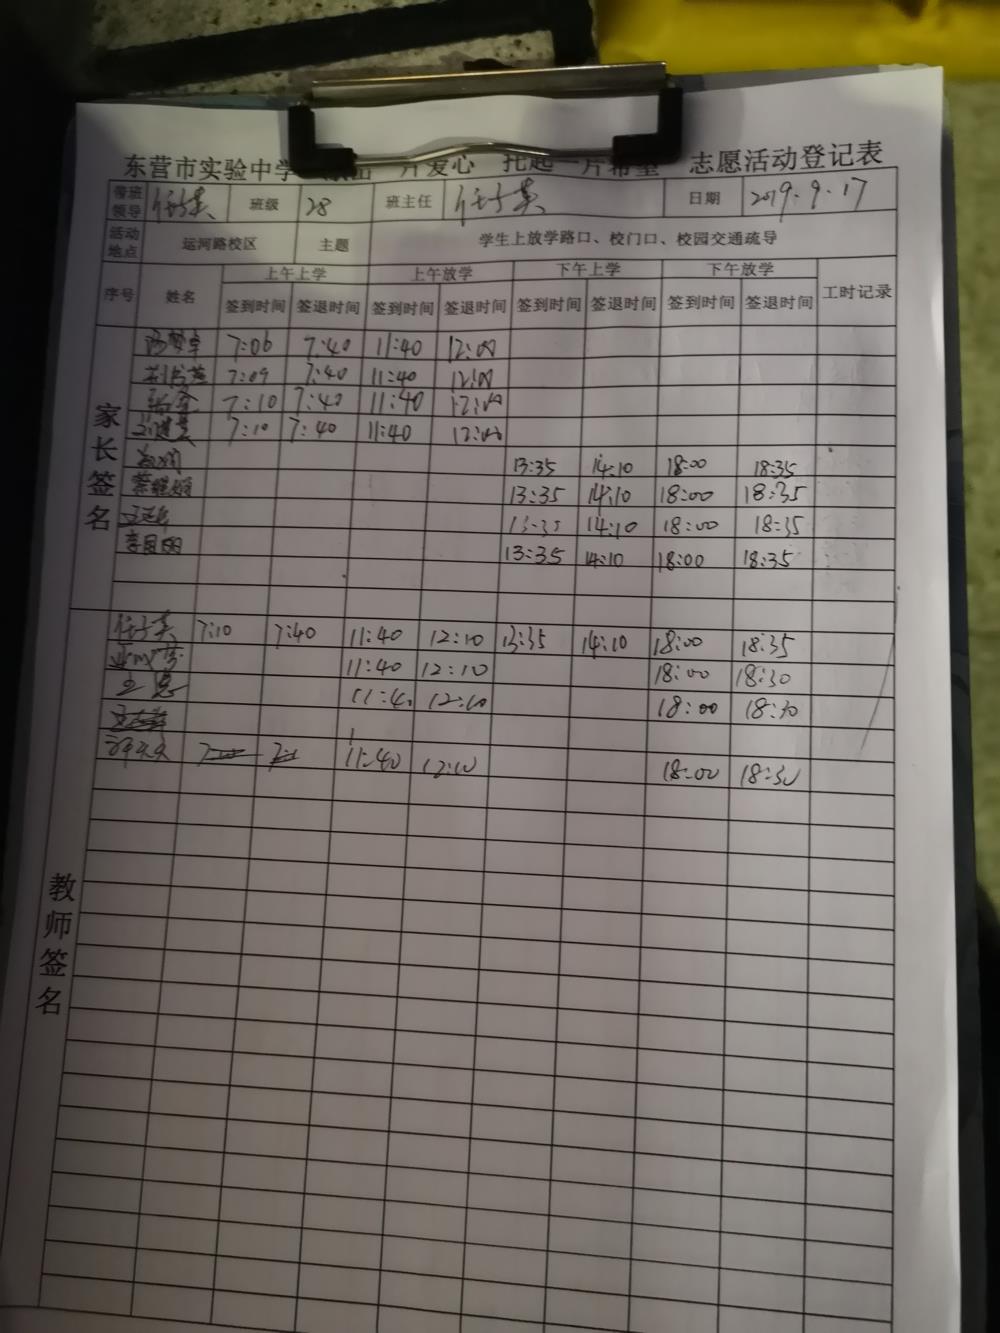 东营市实验中学 片爱心 托起一片希望 志愿活动登记表
带班领导 任子英 班级 28 班主任 任子英 日期 2019.9.17
活动地点 运河路校区 主题 学生上放学路口、校门口、校园交通疏导
序号 姓名 上午上学 上午放学 下午上学 下午放学 工时记录
签到时间 签退时间 签到时间 签退时间 签到时间 签退时间 签到时间 签退时间
家长签名
7:06 7:40 11:40 12:00
7:09 7:40 11:40 12:00
7:10 7:40 11:40 12:00
7:10 7:40 11:40 12:00
13:35 14:10 18:00 18:35
13:35 14:10 18:00 18:35
13:35 14:10 18:00 18:35
13:35 14:10 18:00 18:35
教师签名
任子英 7:10 7:40 11:40 12:10 13:35 14:10 18:00 18:35
11:40 12:10 18:00 18:30
11:40 12:10 18:00 18:30
11:40 12:10 18:00 18:30